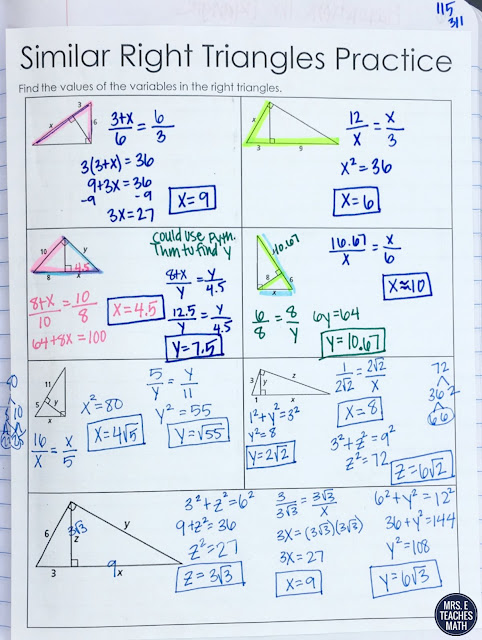 115
311
Similar Right Triangles Practice
Find the values of the variables in the right triangles.
3
x
6
3+x/6 = 6/3
3(3+x) = 36
9+3x = 36
-9 -9
3x = 27
x = 9
x
3
9
12/x = x/3
x² = 36
x = 6
10
y
8
x
4.5
could use Pyth.
Thm to find y
8+x/10 = 10/8
64+8x = 100
x = 4.5
8+x/y = y/4.5
12.5/y = y/4.5
y = 7.5
10.67
y
8
6
x
10.67/x = x/6
x ≈ 10
6/8 = 8/y
6y = 64
y = 10.67
11
5
y
x
80
16/x = x/5
x² = 80
x = 4√5
5/y = y/11
y² = 55
y = √55
3
y
z
1
x
1² + y² = 3²
y² = 8
y = 2√2
1/2√2 = 2√2/x
x = 8
3² + z² = 9²
z² = 72
z = 6√2
72
36 2
6 6
6
3√3
z
y
3
9
x
3² + z² = 6²
9 + z² = 36
z² = 27
z = 3√3
3/3√3 = 3√3/x
3x = (3√3)(3√3)
3x = 27
x = 9
6² + y² = 12²
36 + y² = 144
y² = 108
y = 6√3
MRS. E
TEACHES
MATH